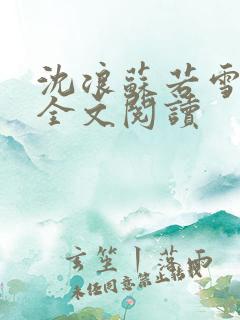 沈浪蘇若雪
全文閱讀
玄笙｜落雨
未经同意禁止転載